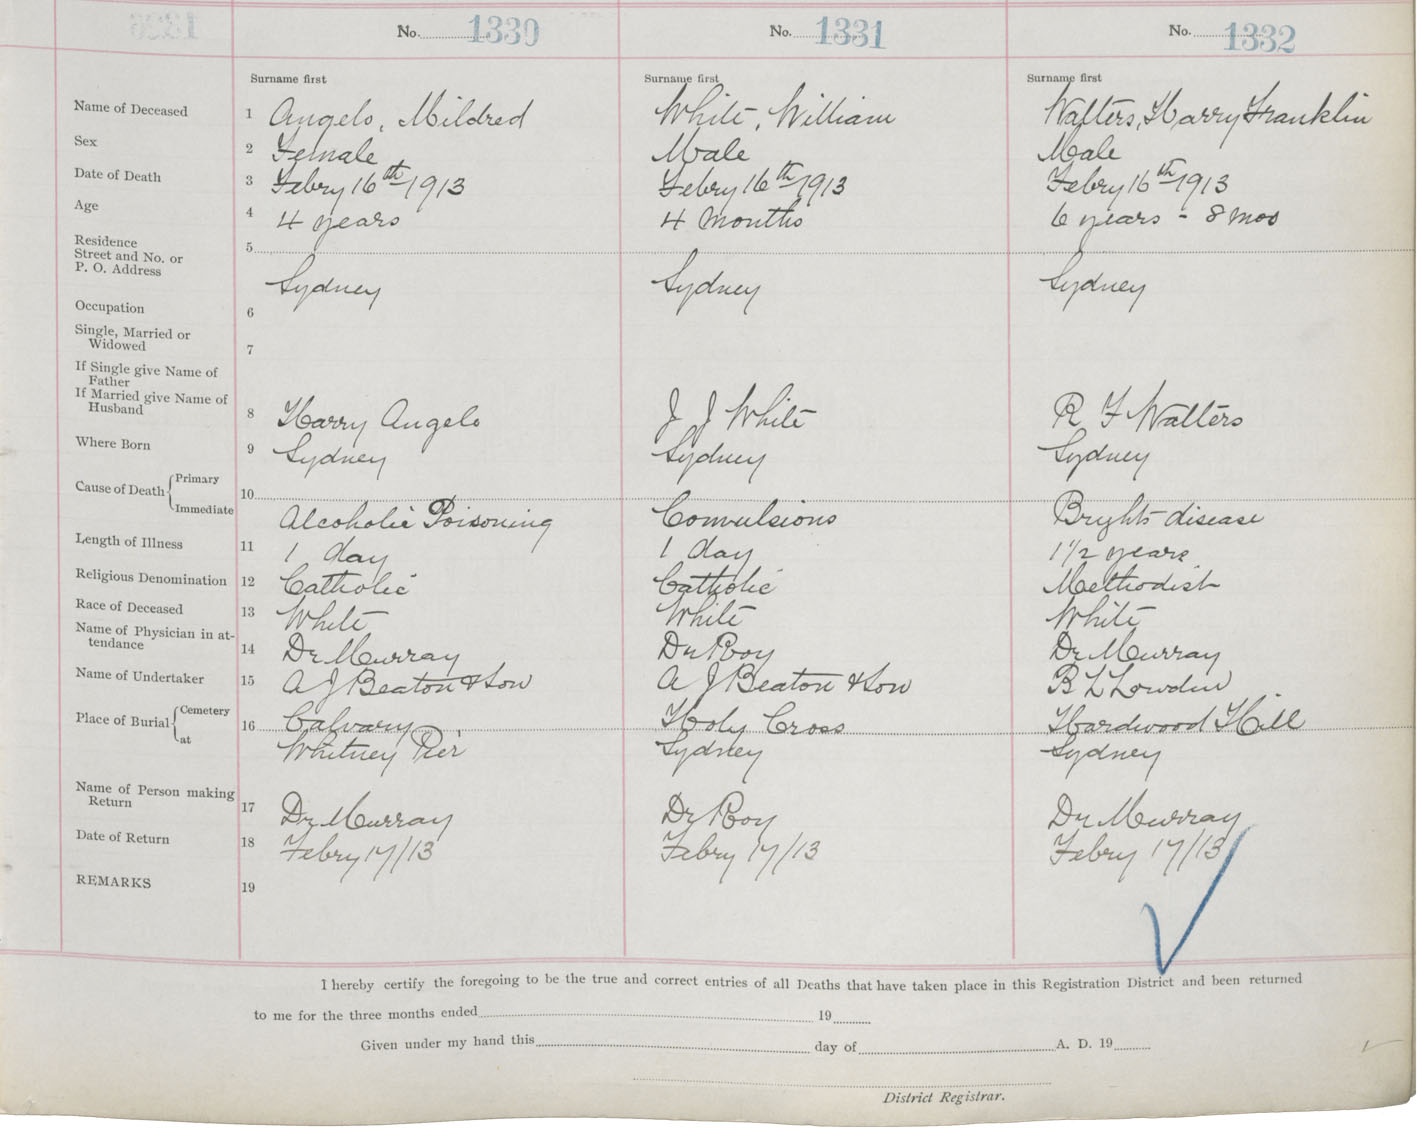 No. 1330 No. 1331 No. 1332
Surname first Surname first Surname first
Name of Deceased 1 Angelo, Mildred White, William Walters, Harry Franklin
Sex 2 Female Male Male
Date of Death 3 Febry 16th 1913 Febry 16th 1913 Febry 16th 1913
Age 4 4 years 4 months 6 years - 8 mos
Residence 5
Street and No. or
P. O. Address
Sydney Sydney Sydney
Occupation 6
Single, Married or
Widowed 7
If Single give Name of
Father
If Married give Name of
Husband 8 Harry Angelo J J White R F Walters
Where Born 9 Sydney Sydney Sydney
Cause of Death Primary 10
Immediate Alcoholic Poisoning Convulsions Brights disease
Length of Illness 11 1 day 1 day 1 1/2 years
Religious Denomination 12 Catholic Catholic Methodist
Race of Deceased 13 White White White
Name of Physician in at-
tendance 14 Dr Murray Dr Roy Dr Murray
Name of Undertaker 15 A J Beaton & Son A J Beaton & Son
Place of Burial Cemetery 16 Calvary Holy Cross Hardwood Hill
at Whitney Pier Sydney Sydney
Name of Person making
Return 17 Dr Murray Dr Roy Dr Murray
Date of Return 18 Febry 17/13 Febry 17/13 Febry 17/13
REMARKS 19
I hereby certify the foregoing to be the true and correct entries of all Deaths that have taken place in this Registration District and been returned
to me for the three months ended 19
Given under my hand this day of A. D. 19
District Registrar.